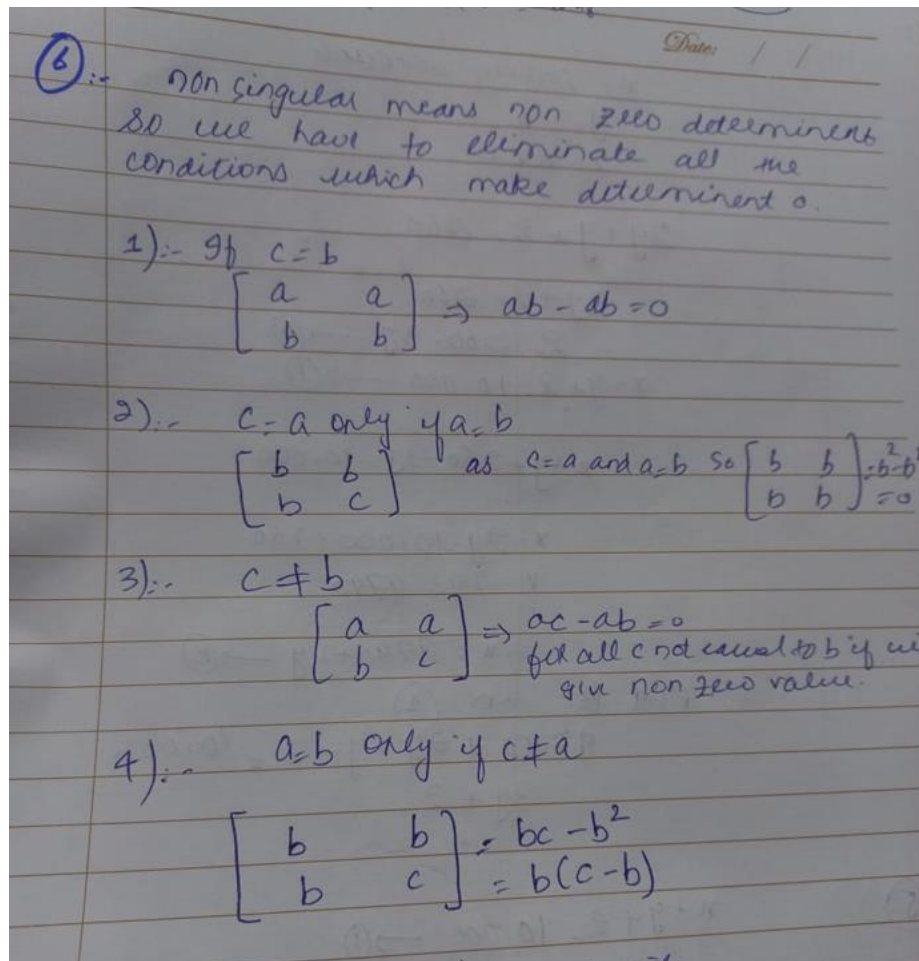 Date: / /
6 :- non singular means non zero determinent
so we have to eliminate all the
conditions which make determinent 0.
1):- If c = b
[ a a
b b ] ⇒ ab - ab = 0
2):- c = a only if a = b
[ b b
b c ] as c = a and a = b so [ b b
b b ] = b² - b²
= 0
3):- c ≠ b
[ a a
b c ] ⇒ ac - ab = 0
for all c not equal to b if we
give non zero value.
4):- a = b only if c ≠ a
[ b b
b c ] = bc - b²
= b(c - b)